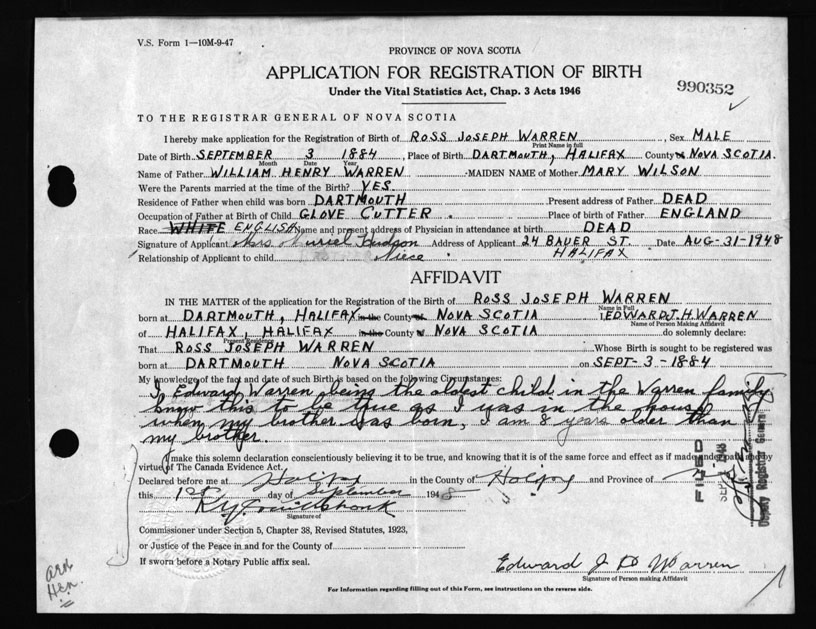 V.S. Form 1—10M-9-47
PROVINCE OF NOVA SCOTIA
APPLICATION FOR REGISTRATION OF BIRTH
Under the Vital Statistics Act, Chap. 3 Acts 1946
990352
TO THE REGISTRAR GENERAL OF NOVA SCOTIA
I hereby make application for the Registration of Birth of ROSS JOSEPH WARREN, Sex MALE
Print Name in full
Date of Birth SEPTEMBER 3 1884, Place of Birth DARTMOUTH, HALIFAX County NOVA SCOTIA.
Month Date Year
Name of Father WILLIAM HENRY WARREN MAIDEN NAME of Mother MARY WILSON
Were the Parents married at the time of the Birth? YES.
Residence of Father when child was born DARTMOUTH Present address of Father DEAD
Occupation of Father at Birth of Child GLOVE CUTTER. Place of birth of Father ENGLAND
Race WHITE ENGLISH Name and present address of Physician in attendance at birth DEAD
Signature of Applicant Mrs Muriel Hudson Address of Applicant 24 BAUER ST. Date AUG-31-1948
HALIFAX
Relationship of Applicant to child Niece
AFFIDAVIT
IN THE MATTER of the application for the Registration of the Birth of ROSS JOSEPH WARREN
Name in Full
born at DARTMOUTH, HALIFAX in the County of NOVA SCOTIA I, EDWARD J. H. WARREN
Name of Person Making Affidavit
of HALIFAX, HALIFAX in the County of NOVA SCOTIA do solemnly declare:
Present Residence
That ROSS JOSEPH WARREN Whose Birth is sought to be registered was
born at DARTMOUTH NOVA SCOTIA on SEPT-3-1884
My knowledge of the fact and date of such Birth is based on the following Circumstances:
I, Edward Warren being the oldest child in the Warren family
know this to be true as I was in the house
when my brother was born, I am 8 years older than
my brother.
I make this solemn declaration conscientiously believing it to be true, and knowing that it is of the same force and effect as if made under oath and by
virtue of The Canada Evidence Act.
Declared before me at Halifax in the County of Halifax and Province of
this 1st day of September 1948
Signature of
Commissioner under Section 5, Chapter 38, Revised Statutes, 1923,
or Justice of the Peace in and for the County of
If sworn before a Notary Public affix seal.
Edward J H Warren
Signature of Person making Affidavit
For Information regarding filling out of this Form, see instructions on the reverse side.
FILED
1948
Deputy Registrar General